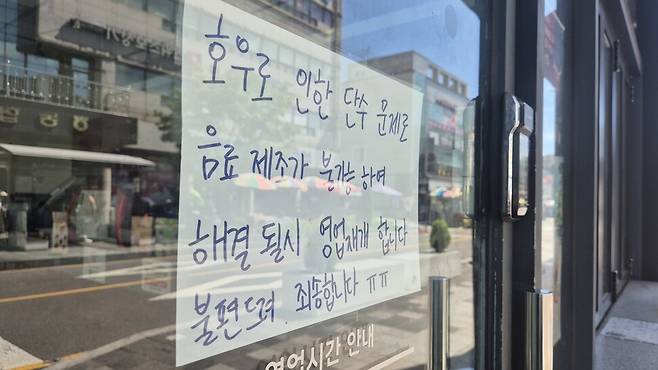 호우로 인한 단수 문제로
음료 제조가 불가능 하여
해결 될시 영업재개 합니다
불편드려. 죄송합니다 ㅠㅠ
영업시간 안내